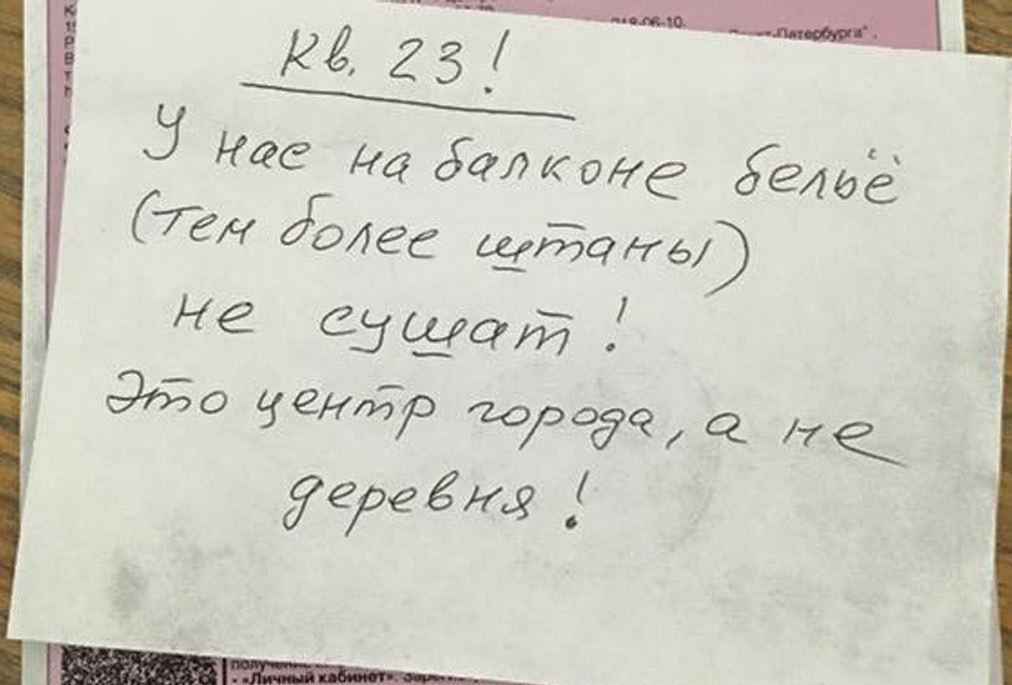 018-06-10.
Петербурга".
кв. 23!
У нас на балконе бельё
(тем более штаны)
не сушат!
Это центр города, а не
деревня!
- «Личный кабинет».